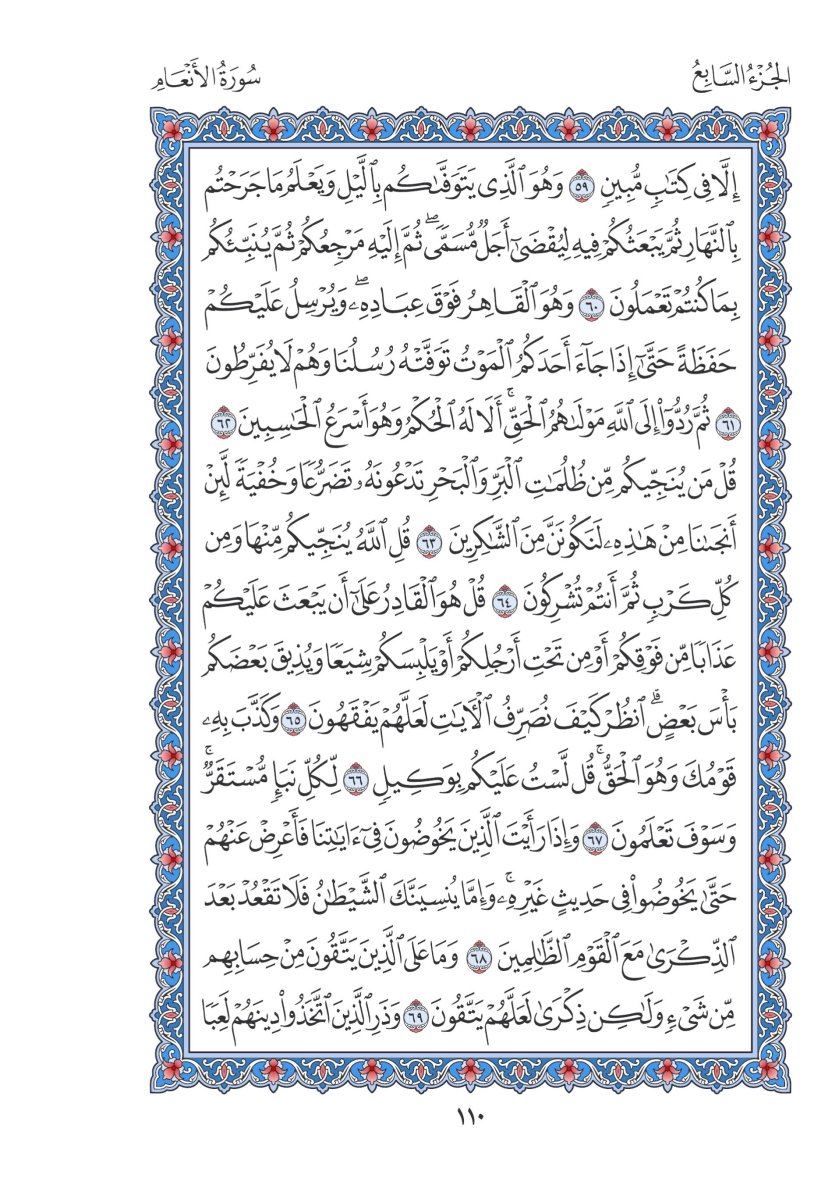 الجُزْءُ السَّابِعُ
سُورَةُ الأَنْعَامِ
إِلَّا فِي كِتَٰبٖ مُّبِينٖ ٥٩ وَهُوَ ٱلَّذِي يَتَوَفَّىٰكُم بِٱلَّيۡلِ وَيَعۡلَمُ مَا جَرَحۡتُم
بِٱلنَّهَارِ ثُمَّ يَبۡعَثُكُمۡ فِيهِ لِيُقۡضَىٰٓ أَجَلٞ مُّسَمّٗىۖ ثُمَّ إِلَيۡهِ مَرۡجِعُكُمۡ ثُمَّ يُنَبِّئُكُم
بِمَا كُنتُمۡ تَعۡمَلُونَ ٦٠ وَهُوَ ٱلۡقَاهِرُ فَوۡقَ عِبَادِهِۦۖ وَيُرۡسِلُ عَلَيۡكُمۡ
حَفَظَةً حَتَّىٰٓ إِذَا جَآءَ أَحَدَكُمُ ٱلۡمَوۡتُ تَوَفَّتۡهُ رُسُلُنَا وَهُمۡ لَا يُفَرِّطُونَ
٦١ ثُمَّ رُدُّوٓاْ إِلَى ٱللَّهِ مَوۡلَىٰهُمُ ٱلۡحَقِّۚ أَلَا لَهُ ٱلۡحُكۡمُ وَهُوَ أَسۡرَعُ ٱلۡحَٰسِبِينَ ٦٢
قُلۡ مَن يُنَجِّيكُم مِّن ظُلُمَٰتِ ٱلۡبَرِّ وَٱلۡبَحۡرِ تَدۡعُونَهُۥ تَضَرُّعٗا وَخُفۡيَةٗ لَّئِنۡ
أَنجَىٰنَا مِنۡ هَٰذِهِۦ لَنَكُونَنَّ مِنَ ٱلشَّٰكِرِينَ ٦٣ قُلِ ٱللَّهُ يُنَجِّيكُم مِّنۡهَا وَمِن
كُلِّ كَرۡبٖ ثُمَّ أَنتُمۡ تُشۡرِكُونَ ٦٤ قُلۡ هُوَ ٱلۡقَادِرُ عَلَىٰٓ أَن يَبۡعَثَ عَلَيۡكُمۡ
عَذَابٗا مِّن فَوۡقِكُمۡ أَوۡ مِن تَحۡتِ أَرۡجُلِكُمۡ أَوۡ يَلۡبِسَكُمۡ شِيَعٗا وَيُذِيقَ بَعۡضَكُم
بَأۡسَ بَعۡضٍۗ ٱنظُرۡ كَيۡفَ نُصَرِّفُ ٱلۡأٓيَٰتِ لَعَلَّهُمۡ يَفۡقَهُونَ ٦٥ وَكَذَّبَ بِهِۦ
قَوۡمُكَ وَهُوَ ٱلۡحَقُّۚ قُل لَّسۡتُ عَلَيۡكُم بِوَكِيلٖ ٦٦ لِّكُلِّ نَبَإٖ مُّسۡتَقَرّٞۚ
وَسَوۡفَ تَعۡلَمُونَ ٦٧ وَإِذَا رَأَيۡتَ ٱلَّذِينَ يَخُوضُونَ فِيٓ ءَايَٰتِنَا فَأَعۡرِضۡ عَنۡهُمۡ
حَتَّىٰ يَخُوضُواْ فِي حَدِيثٍ غَيۡرِهِۦۚ وَإِمَّا يُنسِيَنَّكَ ٱلشَّيۡطَٰنُ فَلَا تَقۡعُدۡ بَعۡدَ
ٱلذِّكۡرَىٰ مَعَ ٱلۡقَوۡمِ ٱلظَّٰلِمِينَ ٦٨ وَمَا عَلَى ٱلَّذِينَ يَتَّقُونَ مِنۡ حِسَابِهِم
مِّن شَيۡءٖ وَلَٰكِن ذِكۡرَىٰ لَعَلَّهُمۡ يَتَّقُونَ ٦٩ وَذَرِ ٱلَّذِينَ ٱتَّخَذُواْ دِينَهُمۡ لَعِبٗا
١١٠